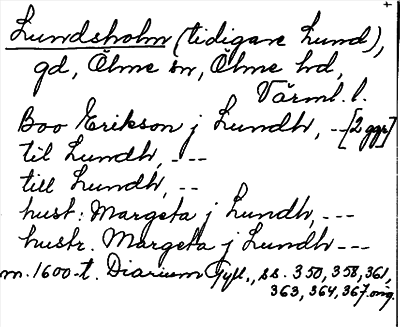 Lundsholm (tidigare Lund),
gd, Ölme sn, Ölme hd,
Värml. l.
Boo Erikson j Lundh, -- [2 ggr]
til Lundh, ---
till Lundh, --
hust: Margeta j Lundh, ---
hustr. Margeta j Lundh ---
m. 1600-t. Diarium Gyll., ss. 350, 358, 361,
363, 364, 367. orig.